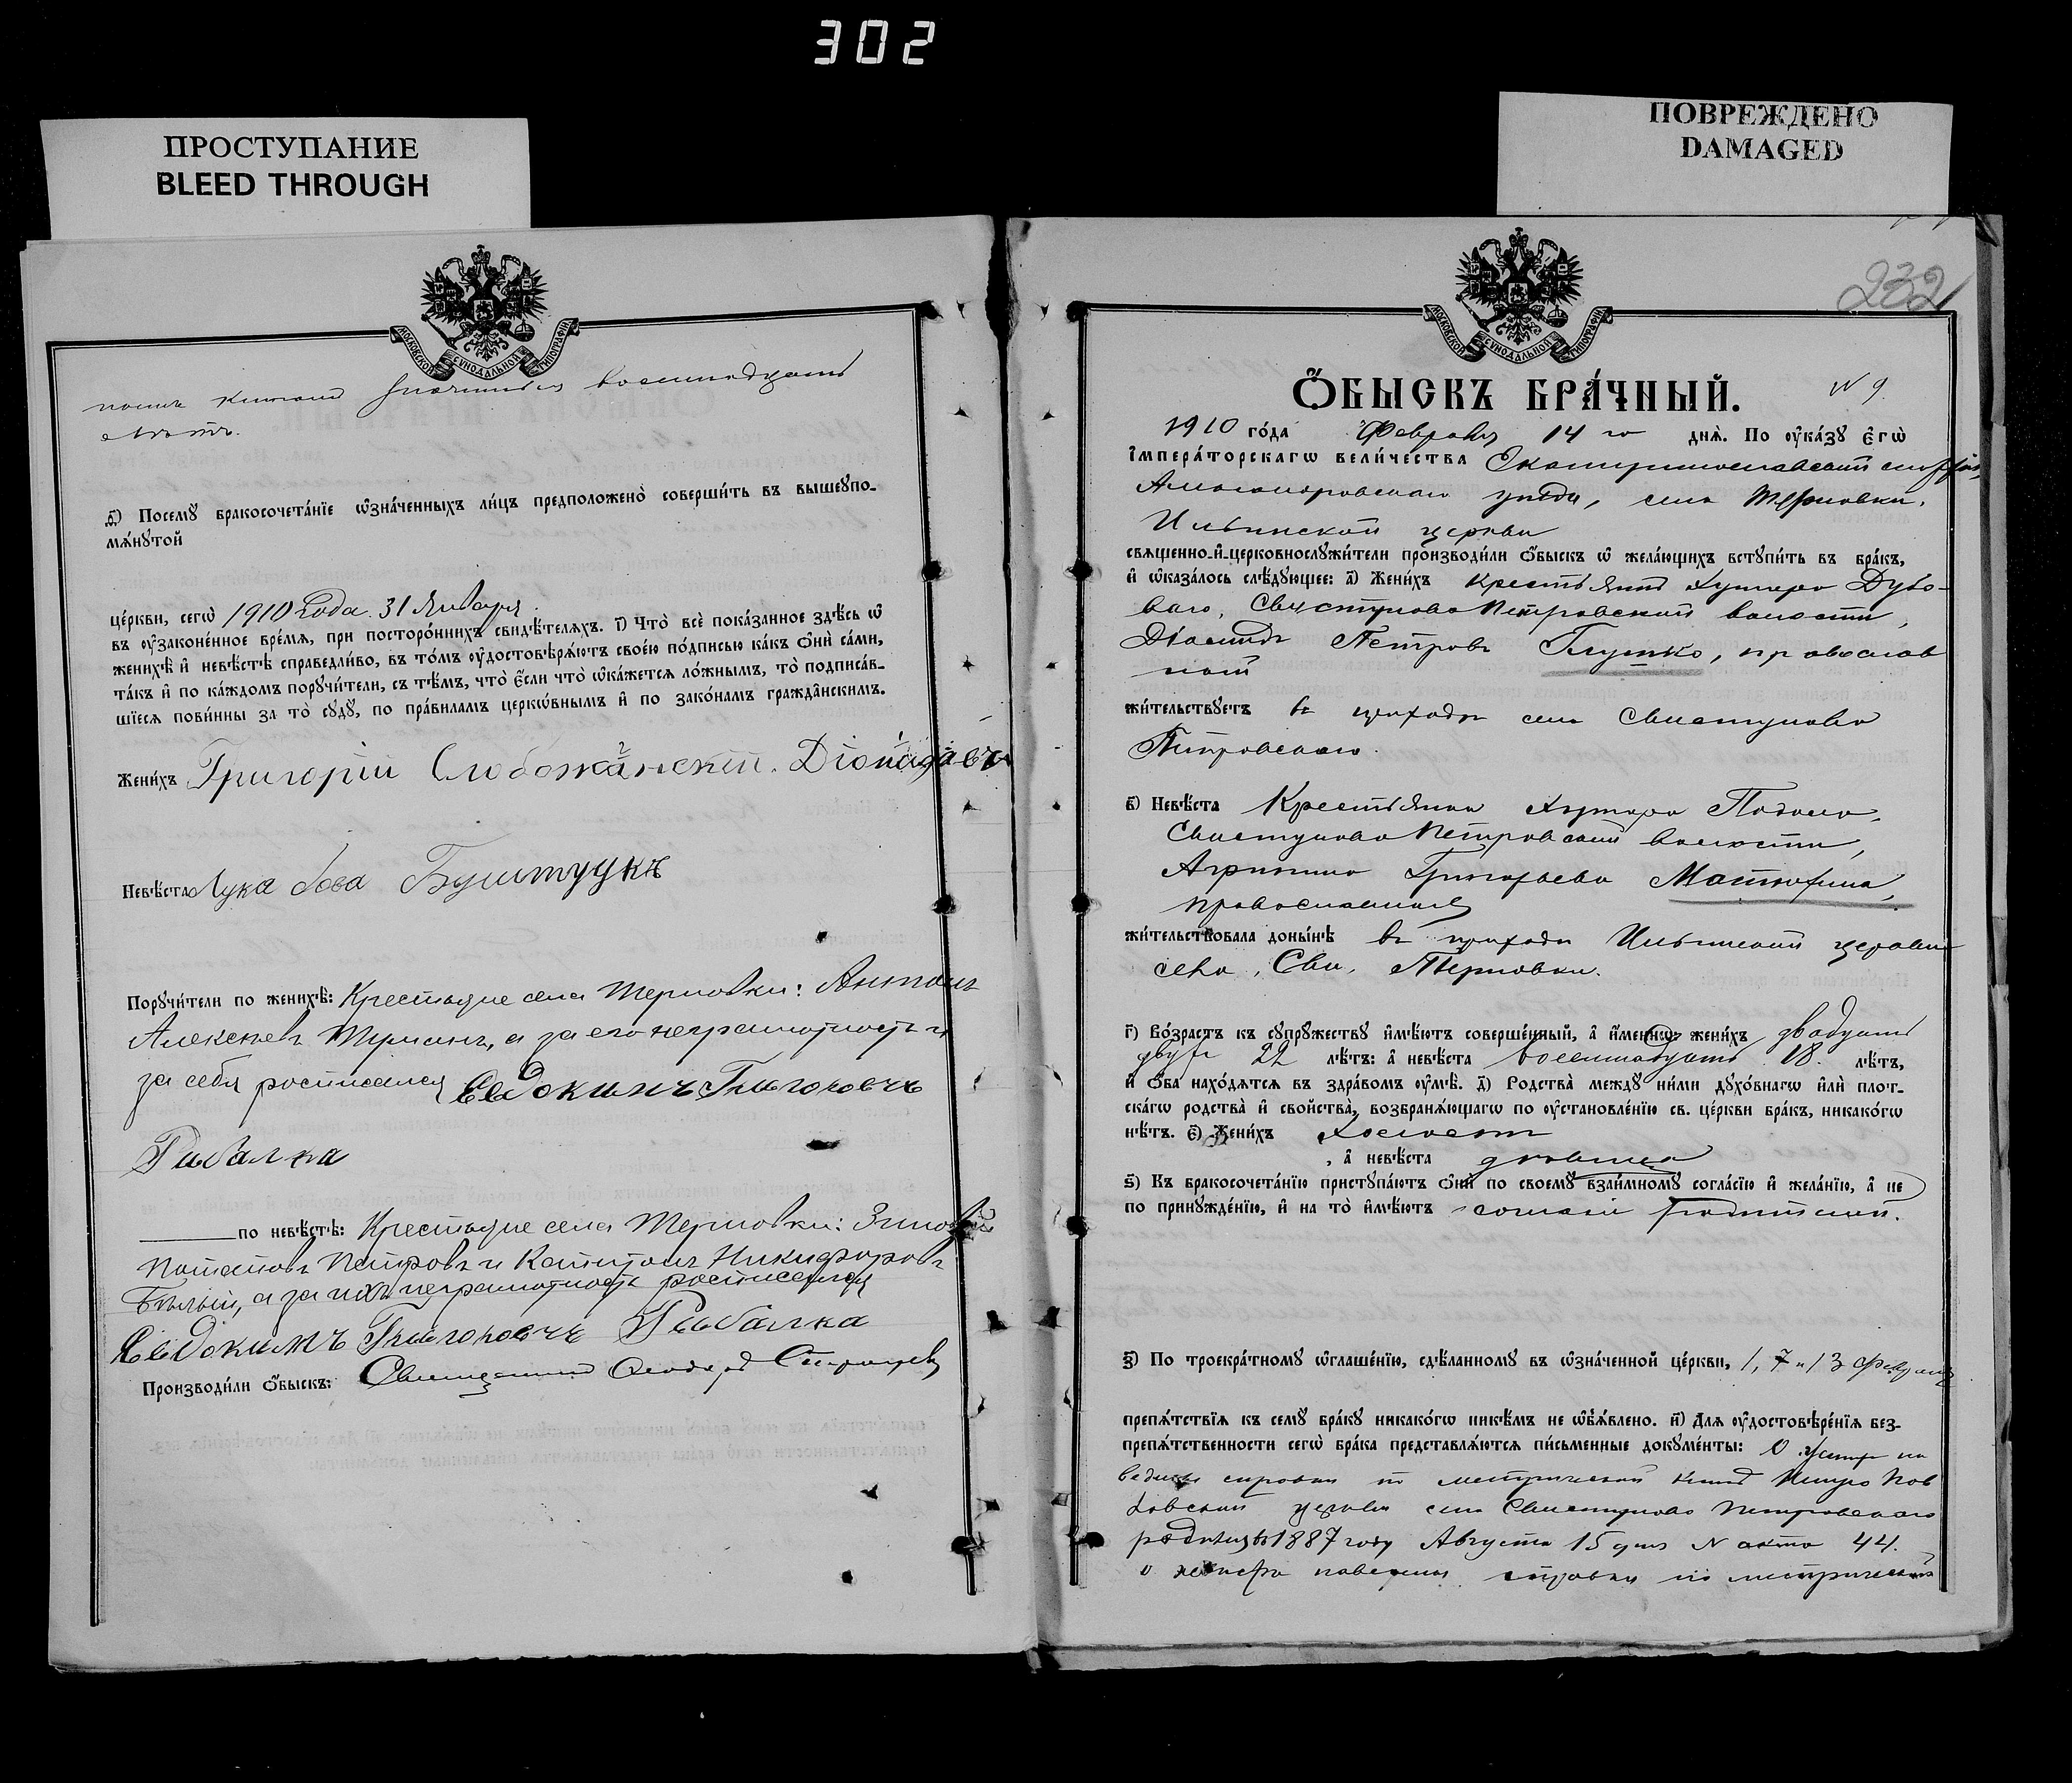 302
ПРОСТУПАНИЕ
BLEED THROUGH
ПОВРЕЖДЕНО
DAMAGED
МОСКОВСКОЙ СѴНОДАЛЬНОЙ ТИПОГРАФІИ
восемнадцать
лѣтъ.
д҃) Посемꙋ бракосочета́нїе ѡ҆зна́ченныхъ ли́цъ предположено̀ соверши́ть въ вышеꙋпо-
мѧ́нꙋтой
це́ркви, сегѡ̀ 1910 года 31 Января
въ ᲂу҆зако́ненное вре́мѧ, при посторо́ннихъ свидѣ́телѧхъ. і҃) Что̀ всѐ пока́занное здѣ́сь ѡ҆
женихѣ̀ и҆ невѣ́стѣ справедли́во, въ то́мъ ᲂу҆достовѣрѧ́ютъ свое́ю по́дписью ка́къ ѻ҆нѝ са́ми,
та́къ и҆ по ка́ждомъ порꙋчи́тели, съ тѣ́мъ, что̀ є҆́сли что̀ ѡ҆ка́жетсѧ ло́жнымъ, то̀ подписа́в-
шїесѧ пови́нны за то̀ сꙋдꙋ̀, по пра́виламъ церкѡ́внымъ и҆ по зако́намъ гражда̑нскимъ.
Жени́хъ Григорій Слобожанскій.
Невѣ́ста Лука
Порꙋчи́тели по женихѣ̀: Крестьяне села Терновки: Антонъ
Алексѣевъ а за его неграмотность и
за себя росписался Евдокимъ Григоровъ
Рибалка
по невѣ́стѣ: Крестьяне села Терновки: Зиновій
Потаповъ Петровъ и Капитонъ Никифоровъ
Бѣлый, а за ихъ неграмотность росписался
Евдокимъ Григоровъ Рибалка
Производи́ли ѻ҆́быскъ: Священникъ Ѳеодоръ
МОСКОВСКОЙ СѴНОДАЛЬНОЙ ТИПОГРАФІИ
232
Ѻ҆́БЫСКЪ БРА́ЧНЫЙ. N 9.
1910 го́да Февраля 14 го днѧ̀. По ᲂу҆ка́зꙋ є҆гѡ̀
і҆мпера́торскагѡ вели́чества Екатеринославской епархіи,
Александровскаго уѣзда, села Терновки,
Ильинской церкви
свѧщенно-и҆-церковнослꙋжи́тели производи́ли ѻ҆́быскъ ѡ҆ жела́ющихъ встꙋпи́ть въ бра́къ,
и҆ ѡ҆каза́лось слѣ́дꙋющее: а҃) Жени́хъ крестьянинъ хутора Дубо-
ваго, Свистуново Петровской волости,
Діомидъ Петровъ Глушко, православ
ный
жи́тельствꙋетъ въ приходѣ села Свистуново
Петровскаго.
в҃) Невѣ́ста Крестьянка хутора
Свистуново Петровской волости,
Агрипина Григорьева Матюхина,
православная
жи́тельствовала доны́нѣ въ приходѣ Ильинской церкви
села, Терновки.
г҃) Во́зрастъ къ сꙋпрꙋ́жествꙋ и҆мѣ́ютъ соверше́нный, а҆ и҆́менно: жени́хъ двадцать
двухъ 22 лѣ́тъ: а҆ невѣ́ста восемнадцать 18. лѣ́тъ,
и҆ ѻ҆́ба нахо́дѧтсѧ въ здра́вомъ ᲂу҆мѣ̀. д҃) Родства̀ междꙋ ни́ми дꙋхо́внагѡ и҆лѝ плот-
ска́гѡ родства̀ и҆ свойства̀, возбранѧ́ющагѡ по ᲂу҆становле́нїю св. це́ркви бра́къ, никако́гѡ
нѣ́тъ. є҃) Жени́хъ холостъ
, а҆ невѣ́ста дѣвица
ѕ҃) Къ бракосочета́нїю пристꙋпа́ютъ ѻ҆нѝ по своемꙋ̀ взаи́мномꙋ согла́сїю и҆ жела́нїю, а҆ не
по принꙋжде́нїю, и҆ на то̀ и҆мѣ́ютъ согласіе родителей.
з҃) По троекра́тномꙋ ѡ҆глаше́нїю, сдѣ́ланномꙋ въ ѡ҆зна́ченной це́ркви, 1, 7 и 13 Февраля
препѧ́тствїѧ къ семꙋ̀ бра́кꙋ никако́гѡ никѣ́мъ не ѡ҆б̾ѧ́влено. и҃) Длѧ ᲂу҆достовѣре́нїѧ без-
препѧ́тственности сегѡ̀ бра́ка представлѧ́ютсѧ пи́сьменные докꙋме́нты: о женихѣ по
ведены справки по метрической книгѣ Петро Пав
ловской церкви села Свистуново Петровскаго
родился въ 1887 году Августа 15 дня N акта 44.
о невѣстѣ наведены справки по метрической